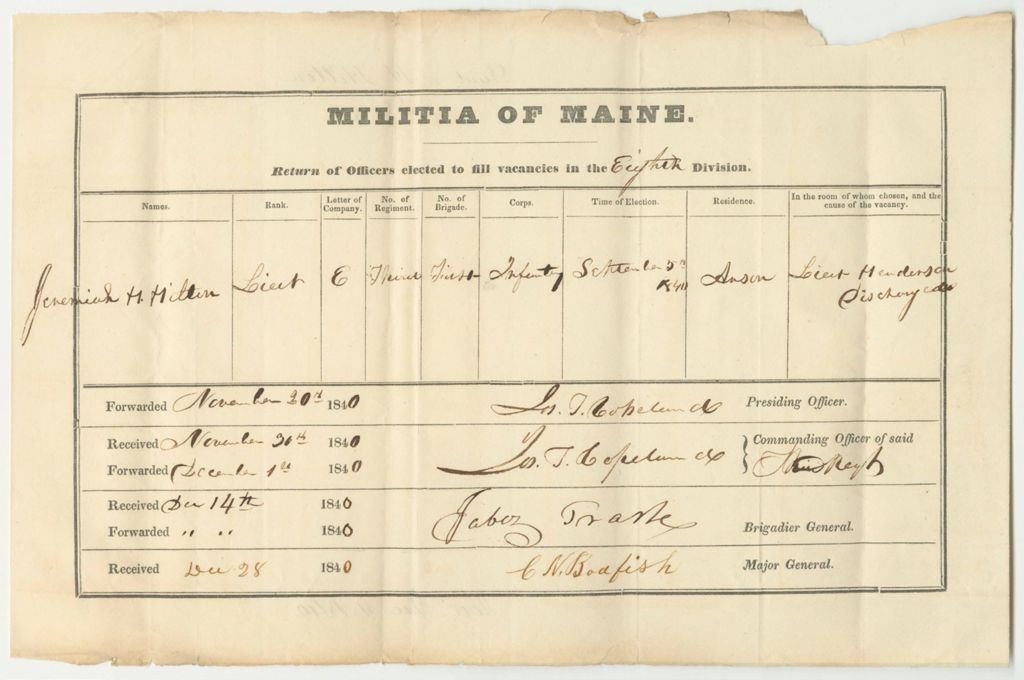 MILITIA OF MAINE.
Return of Officers elected to fill vacancies in the Eighth Division.
Names. Rank. Letter of Company. No. of Regiment. No. of Brigade. Corps. Time of Election. Residence. In the room of whom chosen, and the cause of the vacancy.
Jeremiah H. Hilton Lieut E Third First Infantry September 5th 1840 Anson Lieut Henderson Discharged
Forwarded November 20th 1840 Jos. T. Copeland Presiding Officer.
Received November 30th 1840 Commanding Officer of said
Forwarded December 1st 1840 Jos. T. Copeland Third Regt
Received Dec 14th 1840
Forwarded " " 1840 Jabez Trask Brigadier General.
Received Dec 28 1840 C N. Bodfish Major General.